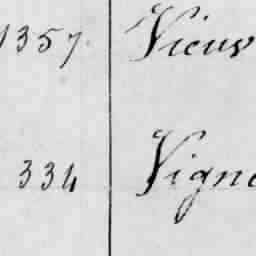 1357. Vieus
334 Vigne